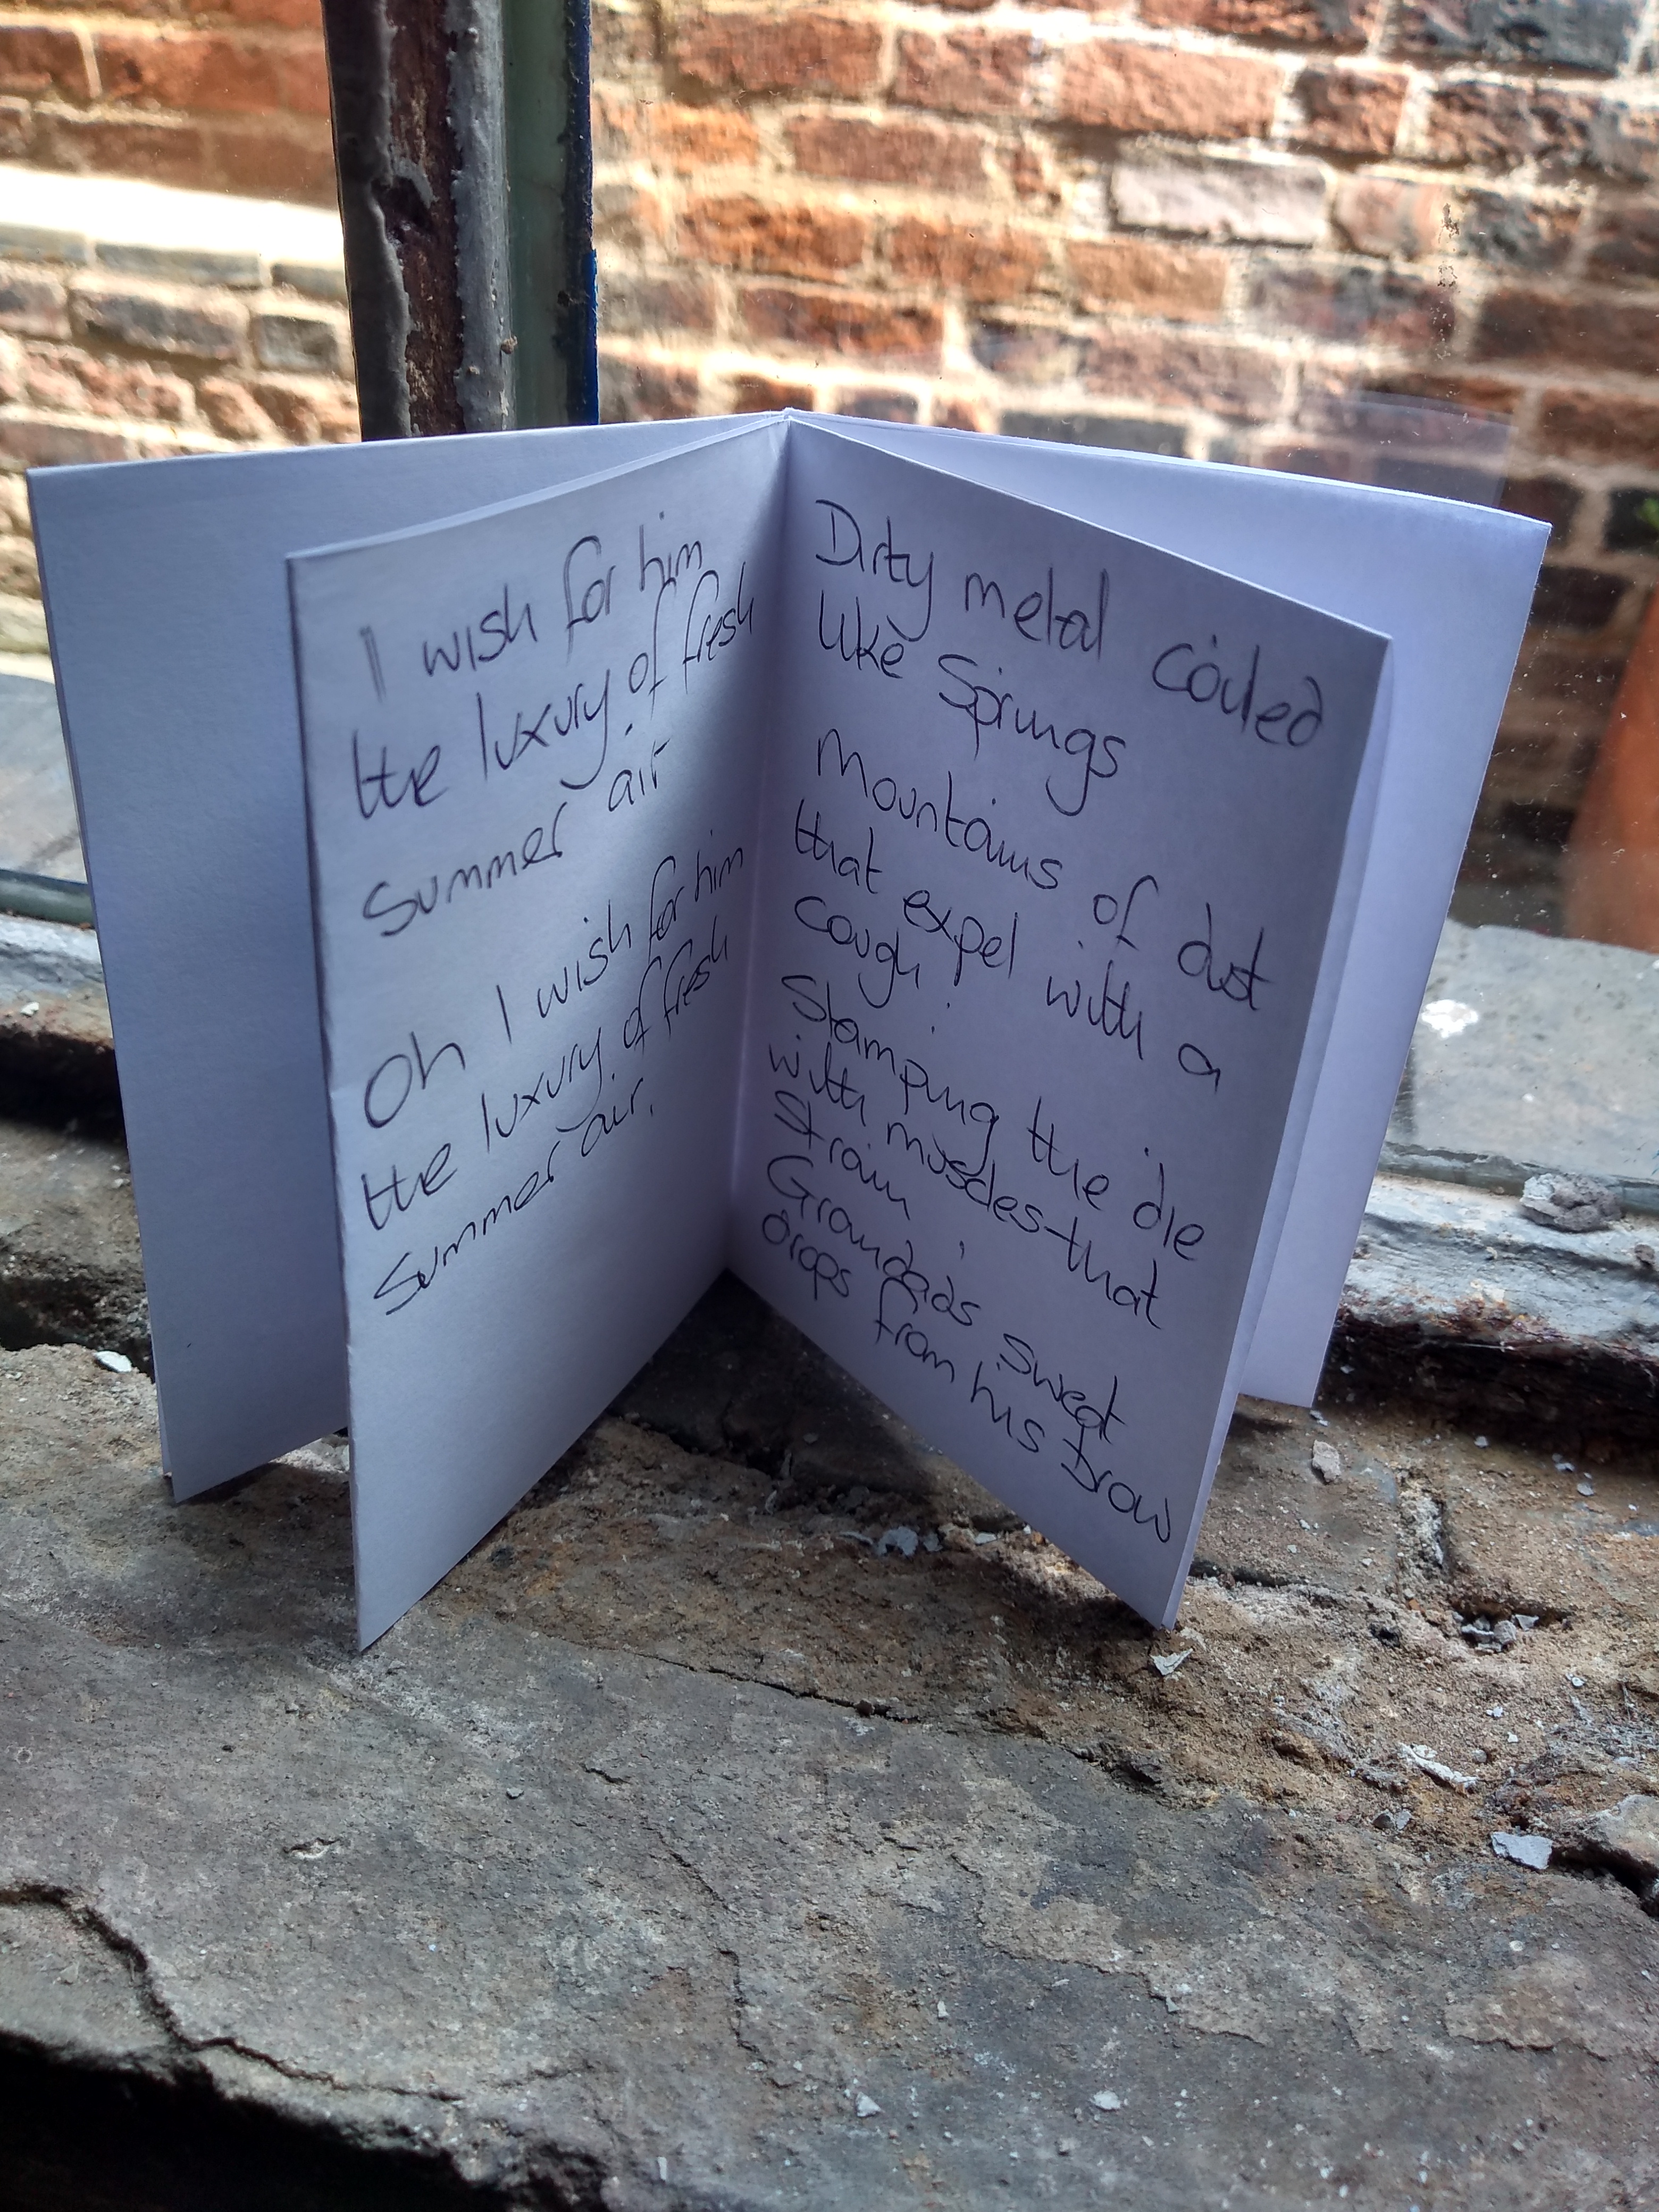 I wish for him
the luxury of fresh
summer air
Oh I wish for him
the luxury of fresh
summer air.
Dirty metal coiled
like springs
Mountains of dust
that expel with a
cough
Stamping the die
with muscles that
strain
Grandads sweat
drops from his brow